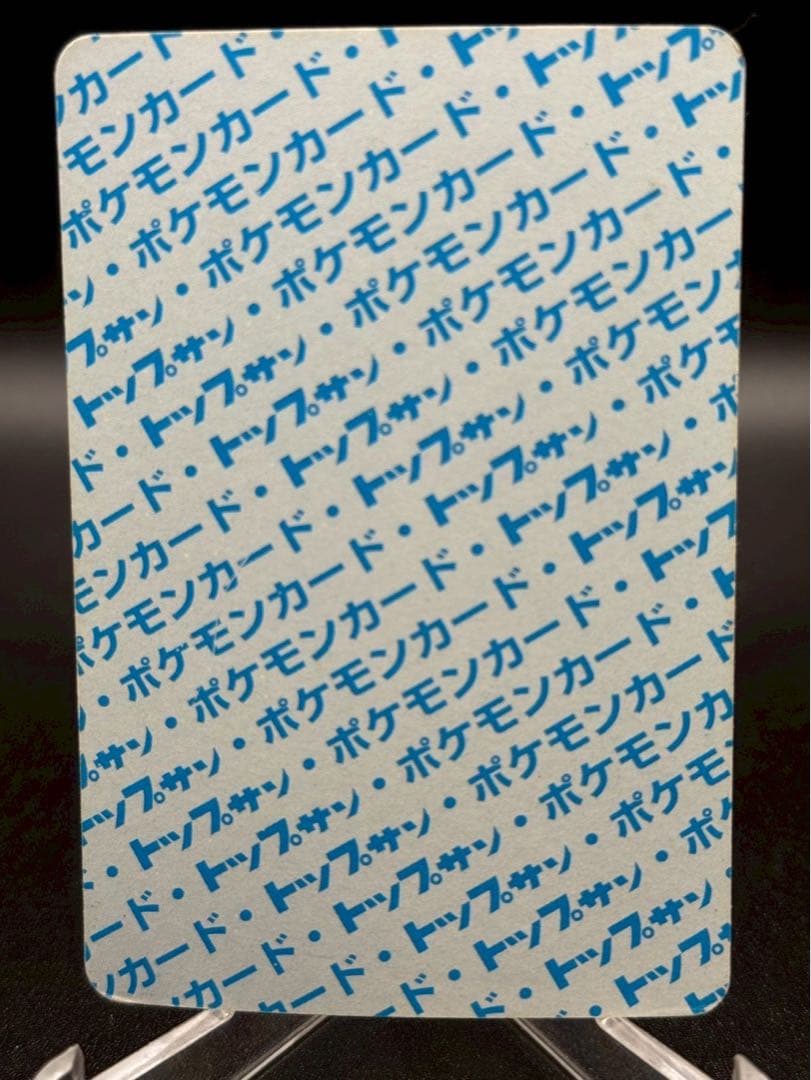 ンカード
モンカード・
ポケモンカード・ト
ン・ポケモンカード・トッ
プサン・ポケモンカード・トップ
トップサン・ポケモンカード・トップ
ド・トップサン・ポケモンカード・トッ
カード・トップサン・ポケモンカード・
モンカード・トップサン・ポケモンカー
ポケモンカード・トップサン・ポケモンカ
・ポケモンカード・トップサン・ポケモ
ン・ポケモンカード・トップサン・ポ
プサン・ポケモンカード・トップサン
トップサン・ポケモンカード・トップ
・トップサン・ポケモンカード・ト
ード・トップサン・ポケモンカード
ンカード・トップサン・ポケモンカ
ンカード・トップサン・ポケモ
カード・トップサン・ポ
ード・トップサン
ド・トップ
ト